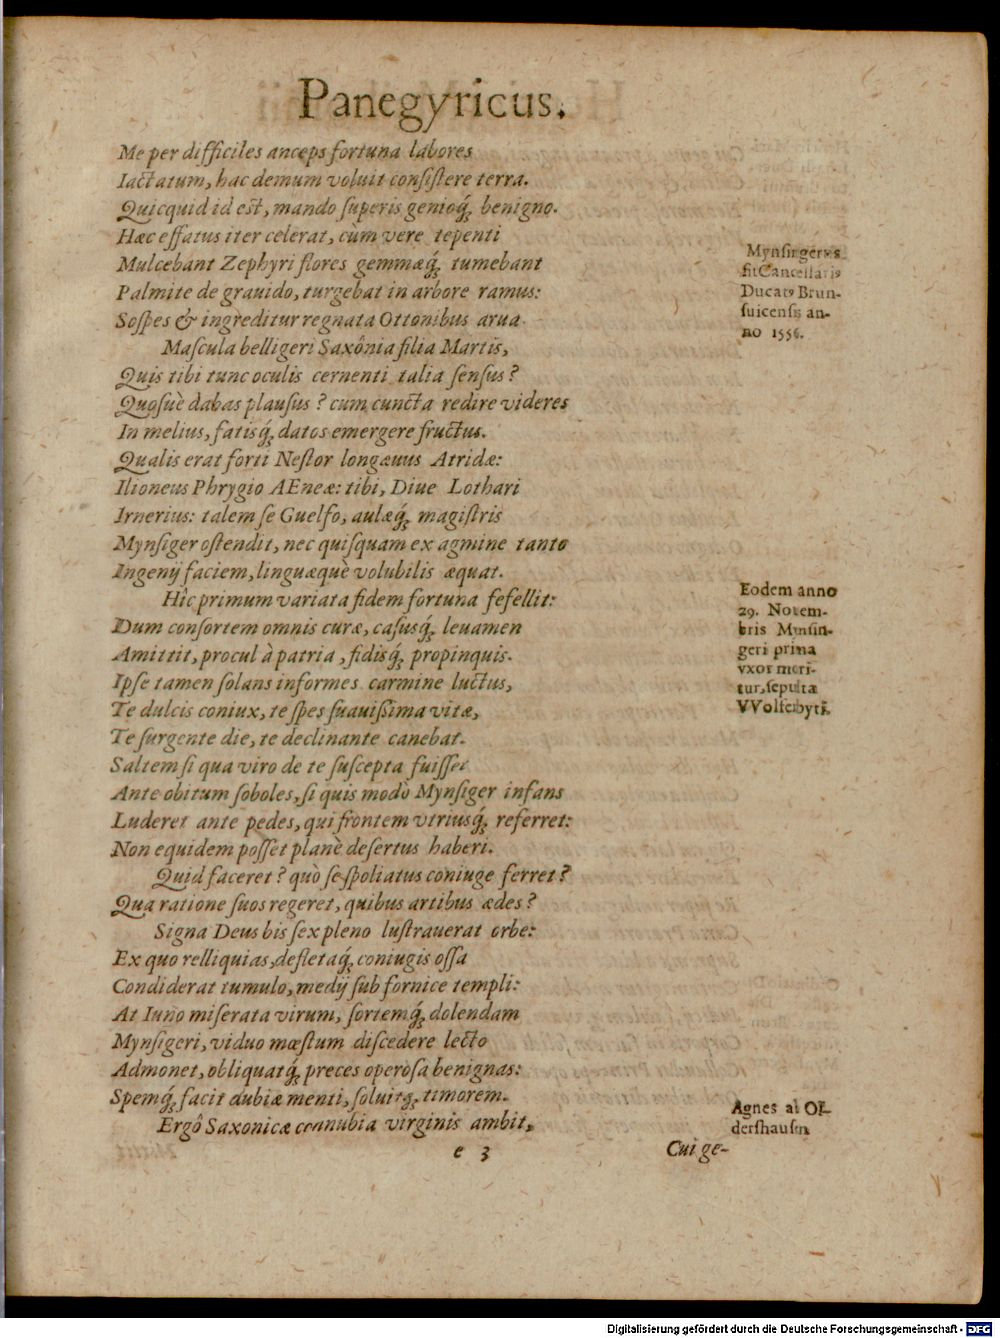 Panegyricus.
Me per difficiles anceps fortuna labores
Iactatum, hac demum voluit consistere terra.
Quicquid id est, mando superis genioq́; benigno.
Hæc effatus iter celerat, cùm vere tepenti
Mulcebant Zephyri flores gemmæq́; tumebant
Palmite de grauido, turgebat in arbore ramus:
Sospes & ingreditur regnata Ottonibus arua.
Mynsingerus
fit Cancellaris
Ducatꝰ Brun-
suicensis an-
no 1556.
Mascula belligeri Saxônia filia Martis,
Quis tibi tunc oculis cernenti talia sensus?
Quosuè dabas plausus? cum cuncta redire videres
In melius, fatisq́; datos emergere fructus.
Qualis erat forti Nestor longæuus Atridæ:
Ilioneus Phrygio AEneæ: tibi, Diue Lothari
Irnerius: talem se Guelfo, aulæq́; magistris
Mynsiger ostendit, nec quisquam ex agmine tanto
Ingenij faciem, linguæquè volubilis æquat.
Hîc primum variata fidem fortuna fefellit:
Dum consortem omnis curæ, casusq́; leuamen
Amittit, procul à patria, fidisq́; propinquis.
Ipse tamen solans informes carmine luctus,
Te dulcis coniux, te spes suauissima vitæ,
Te surgente die, te declinante canebat.
Eodem anno
29. Nouem-
bris Mynsin-
geri prima
vxor mori-
tur, sepulta
VVolferbyti.
Saltem si qua viro de te suscepta fuisset
Ante obitum soboles, si quis modò Mynsiger infans
Luderet ante pedes, qui frontem vtriusq́; referret:
Non equidem posset planè desertus haberi.
Quid faceret? quò se spoliatus coniuge ferret?
Qua ratione suos regeret, quibus artibus ædes?
Signa Deus bis sex pleno lustrauerat orbe:
Ex quo relliquias, defletaq́; coniugis ossa
Condiderat tumulo, medij sub fornice templi:
At Iuno miserata virum, sortemq́; dolendam
Mynsigeri, viduo mœstum discedere lecto
Admonet, obliquatq́; preces operosa benignas:
Spemq́; facit dubiæ menti, soluitq́; timorem.
Ergô Saxonicæ connubia virginis ambit,
Agnes ab Ol-
dershausen
e 3
Cui ge-
Digitalisierung gefördert durch die Deutsche Forschungsgemeinschaft - DFG